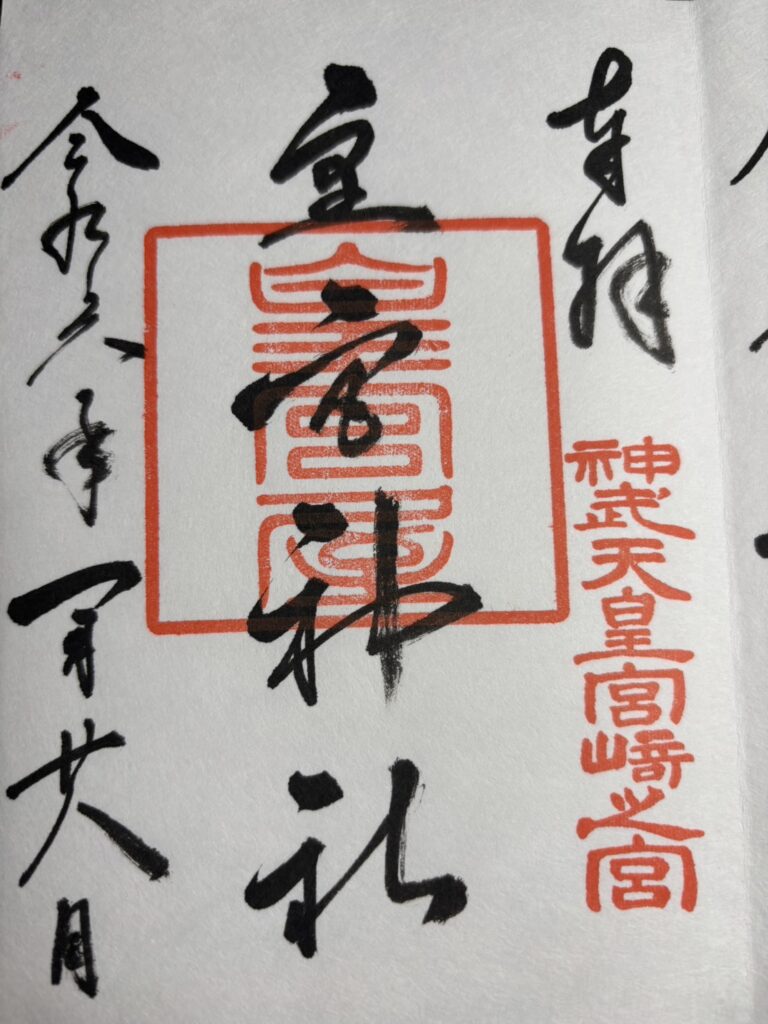 奉拝
神武天皇宮崎之宮
皇宮神社
令和六年一月廿八日